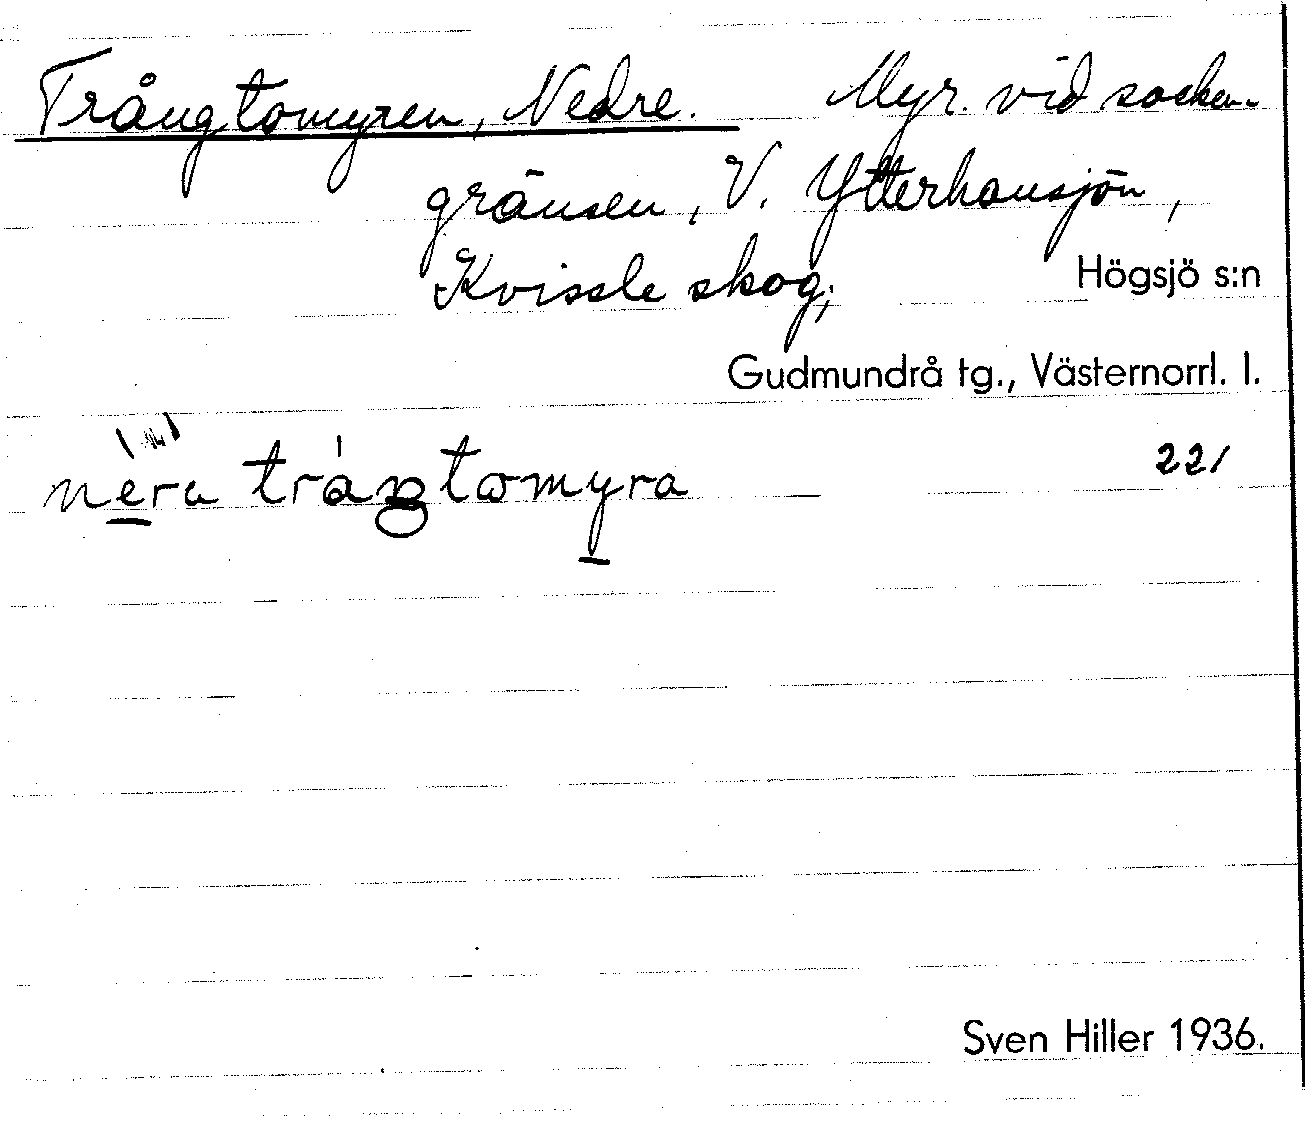 Trångtomyren, Nedre. Myr. vid socken-
gränsen, V. Ytterhansjön,
Kvissle skog;
Högsjö s:n
Gudmundrå tg., Västernorrl. l.
nera trågtomyra 221
Sven Hiller 1936.